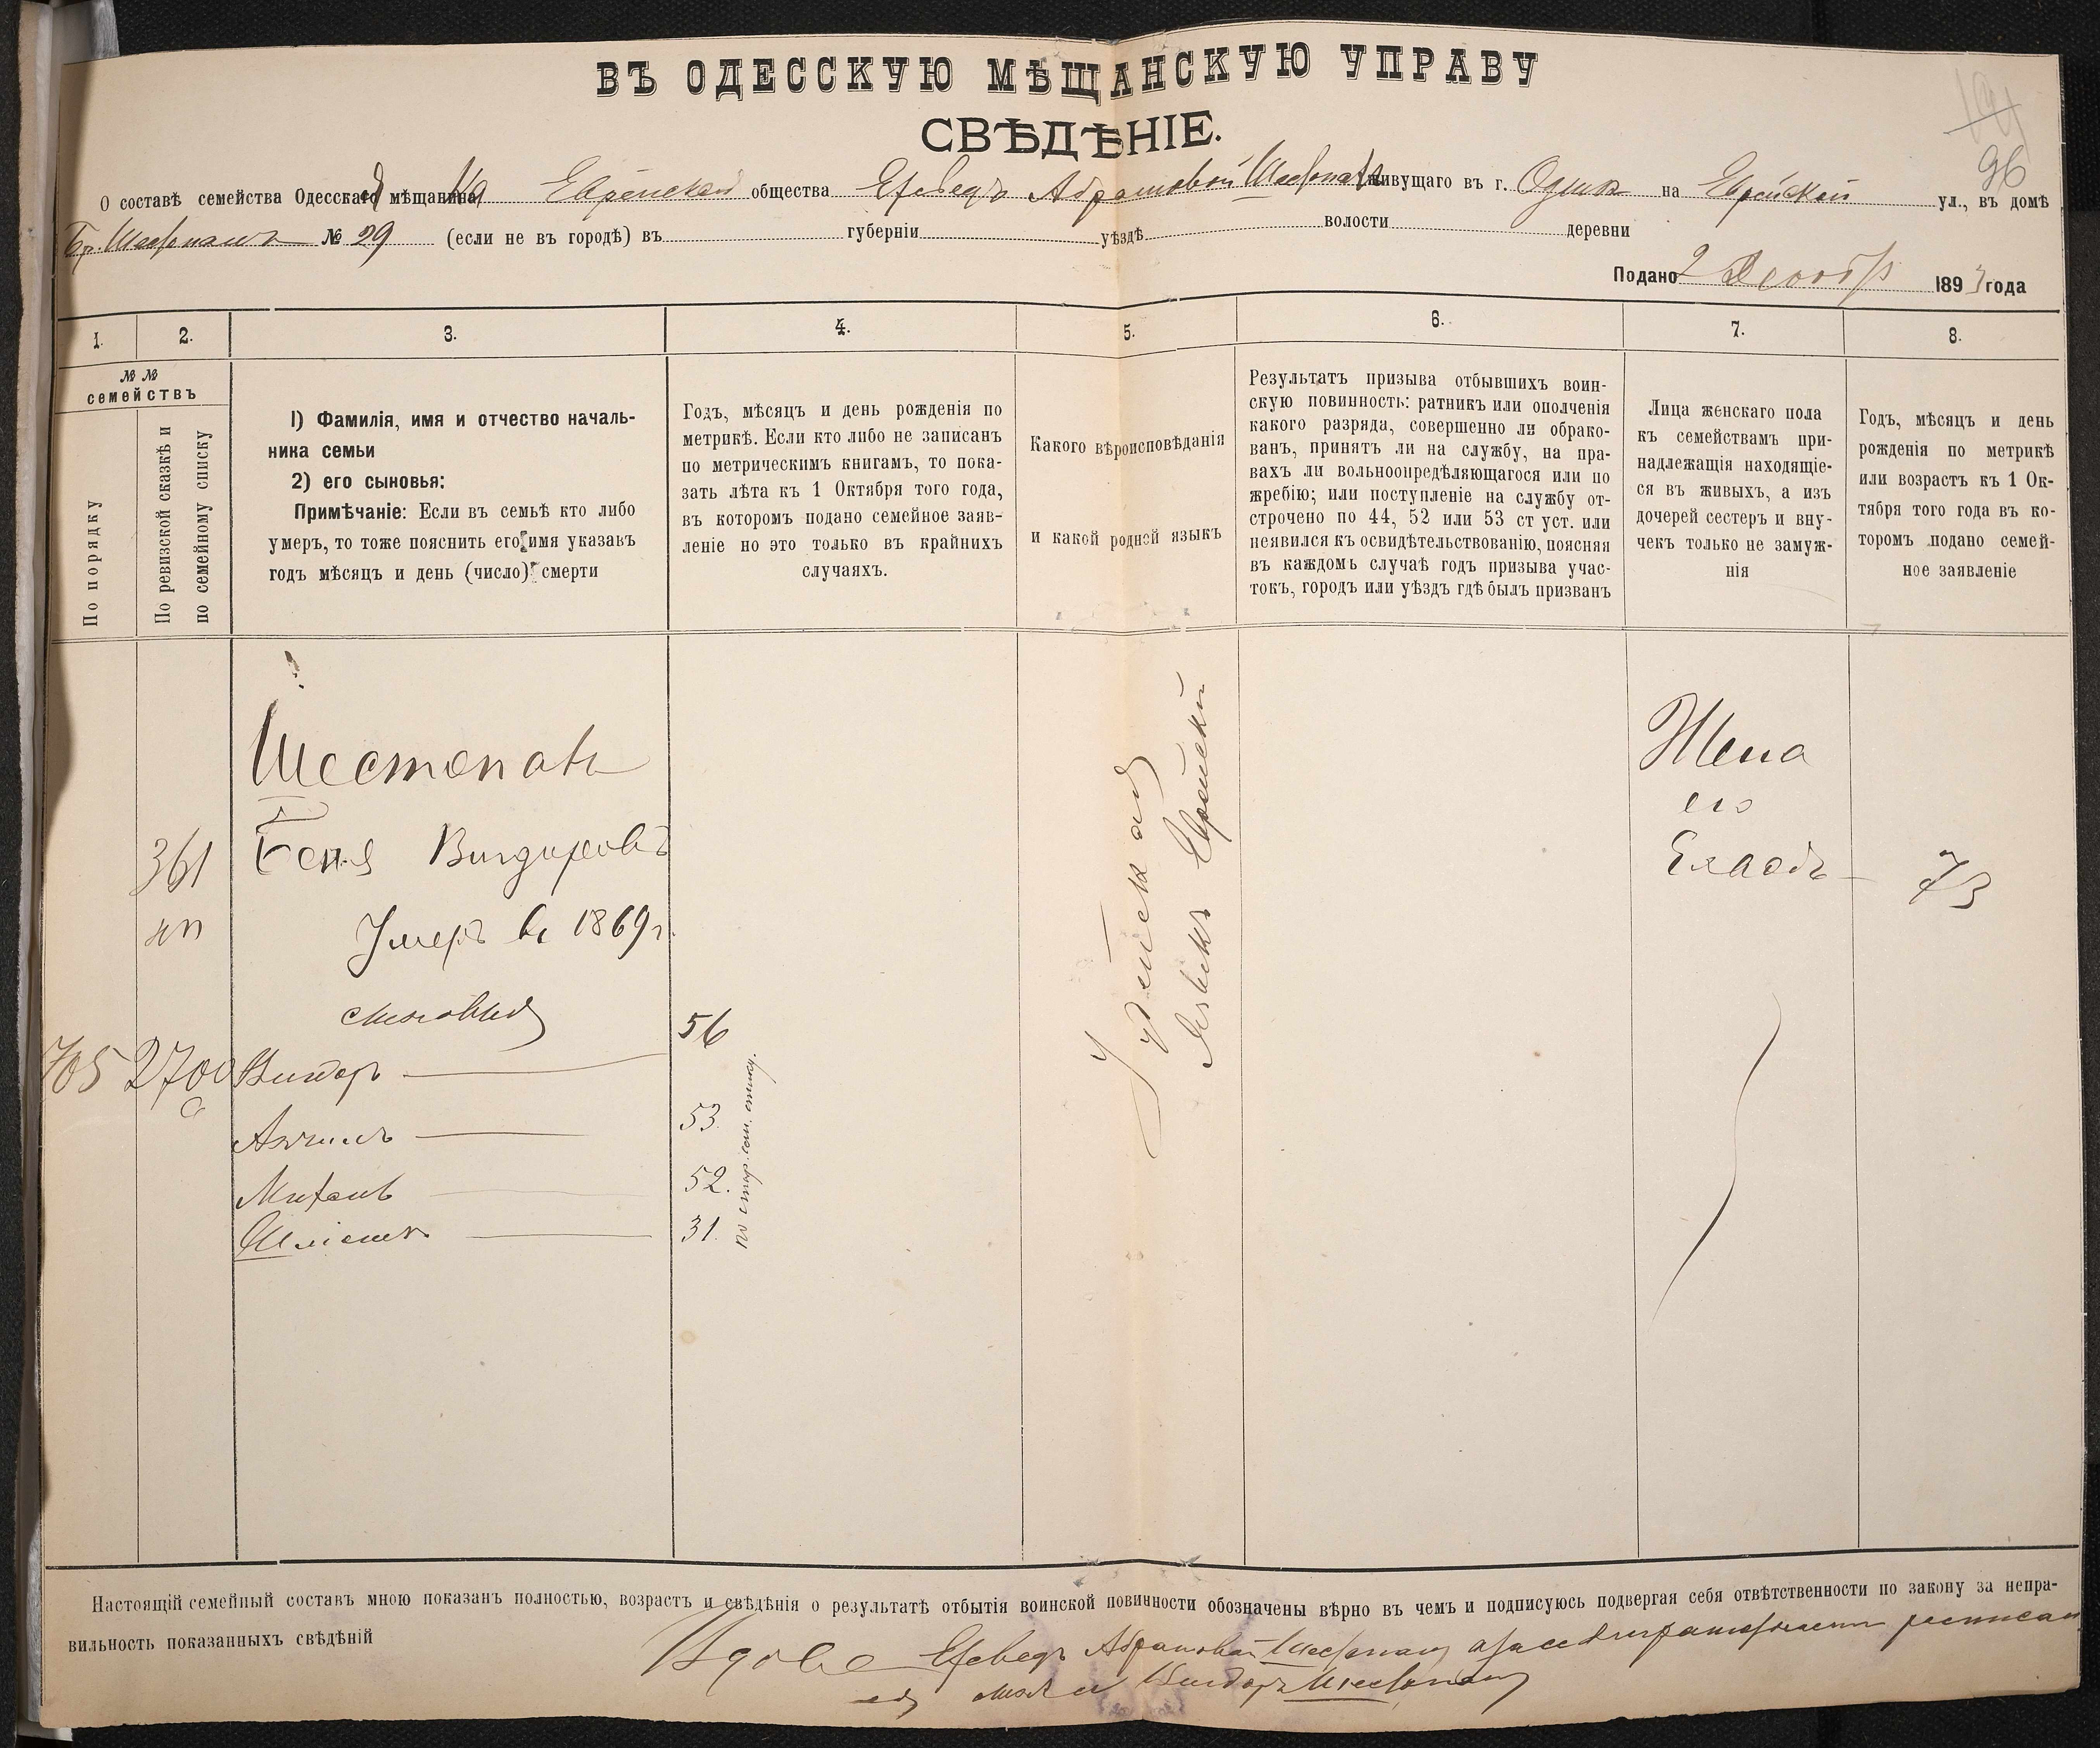 ВЪ ОДЕССКУЮ МѢЩАНСКУЮ УПРАВУ
СВѢДѢНІЕ.
96
О составѣ семейства Одесскаго мѣщанина Еврейской общества Абрамовой Шестопалъ живущаго въ г. Одессѣ на Еврейской ул., въ домѣ
Бр. Шестопалъ № 29 (если не въ городѣ) въ губерніи уѣздѣ волости деревни
Подано 2 1893 года
1. 2. 3. 4. 5. 6. 7. 8.
№ №
семействъ
По порядку
По ревизской сказкѣ и
по семейному списку
1) Фамилія, имя и отчество началь-
ника семьи
2) его сыновья:
Примѣчаніе: Если въ семьѣ кто либо
умеръ, то тоже пояснить его имя указавъ
годъ мѣсяцъ и день (число) смерти
Годъ, мѣсяцъ и день рожденія по
метрикѣ. Если кто либо не записанъ
по метрическимъ книгамъ, то пока-
зать лѣта къ 1 Октября того года,
въ которомъ подано семейное заяв-
леніе но это только въ крайнихъ
случаяхъ.
Какого вѣроисповѣданія
и какой родной языкъ
Результатъ призыва отбывшихъ воин-
скую повинность: ратникъ или ополченія
какого разряда, совершенно ли обрако-
ванъ, принятъ ли на службу, на пра-
вахъ ли вольноопредѣляющагося или по
жребію; или поступленіе на службу от-
строчено по 44, 52 или 53 ст уст. или
неявился къ освидѣтельствованію, поясняя
въ каждомъ случаѣ годъ призыва учас-
токъ, городъ или уѣздъ гдѣ былъ призванъ
Лица женскаго пола
къ семействамъ при-
надлежащія находящіе-
ся въ живыхъ, а изъ
дочерей сестеръ и вну-
чекъ только не замуж-
нія
Годъ, мѣсяцъ и день
рожденія по метрикѣ
или возрастъ къ 1 Ок-
тября того года въ ко-
торомъ подано семей-
ное заявленіе
Шестопалъ
361 Беня
Умеръ въ 1869 г.
сыновья
705 2700 Вигдоръ 56
53.
Михаль 52.
31.
по стар. сем. списку.
Іудейская
Языкъ Еврейскій
Жена
его
73
Настоящій семейный составъ мною показанъ полностью, возрастъ и свѣдѣнія о результатѣ отбытія воинской повинности обозначены вѣрно въ чемъ и подписуюсь подвергая себя отвѣтственности по закону за непра-
вильность показанныхъ свѣдѣній
Вдова Абрамовая Шестопалъ
Вигдоръ Шестопалъ